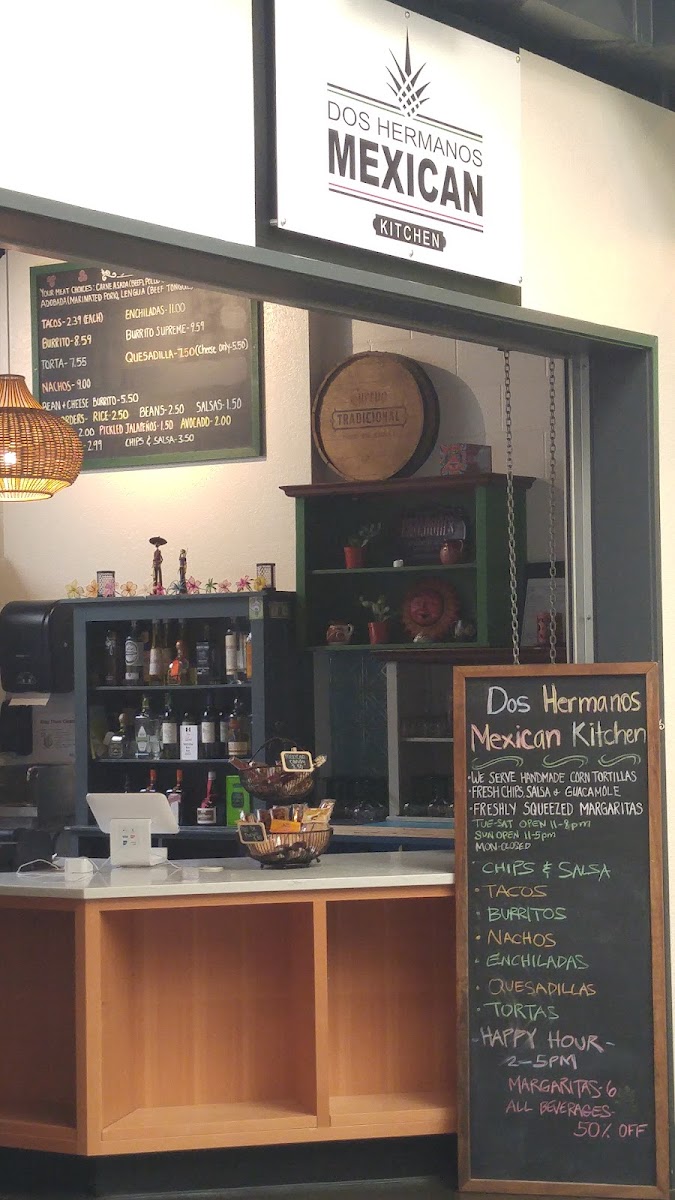 DOS HERMANOS
MEXICAN
KITCHEN
YOUR MEAT CHOICES: CARNE ASADA (BEEF), POLLO
ADOBADA (MARINATED PORK), LENGUA (BEEF TONGUE
TACOS-2.39 (EACH)
ENCHILADAS-11.00
BURRITO-8.59
BURRITO SUPREME-9.59
TORTA-7.55
QUESADILLA-7.50 (Cheese Only-5.50)
NACHOS-9.00
BEAN + CHEESE BURRITO-5.50
ORDERS- RICE 2.50 BEANS-2.50 SALSAS-1.50
2.00 PICKLED JALAPEÑOS-1.50 AVOCADO-2.00
2.99 CHIPS & SALSA-3.50
TRADICIONAL
Dos Hermanos
Mexican Kitchen
·WE SERVE HANDMADE CORN TORTILLAS
·FRESH CHIPS, SALSA & GUACAMOLE
·FRESHLY SQUEEZED MARGARITAS
TUE-SAT OPEN 11-8pm
SUN OPEN 11-5pm
MON-CLOSED
·CHIPS & SALSA
·TACOS
·BURRITOS
·NACHOS
·ENCHILADAS
·QUESADILLAS
·TORTAS
-HAPPY HOUR-
2-5PM
MARGARITAS-6
ALL BEVERAGES-
50% OFF